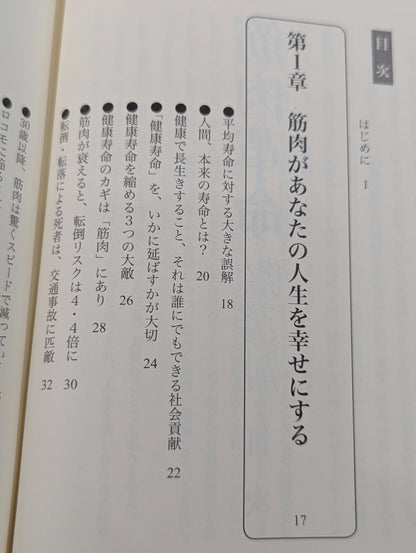 目次
はじめに 1
第1章 筋肉があなたの人生を幸せにする 17
●平均寿命に対する大きな誤解 18
●人間、本来の寿命とは? 20
●健康で長生きすること、それは誰にでもできる社会貢献 22
●「健康寿命」を、いかに延ばすかが大切 24
●健康寿命を縮める3つの大敵 26
●健康寿命のカギは「筋肉」にあり 28
●筋肉が衰えると、転倒リスクは4・4倍に 30
●転倒・転落による死者は、交通事故に匹敵 32
●30歳以降、筋肉は驚くスピードで減ってい